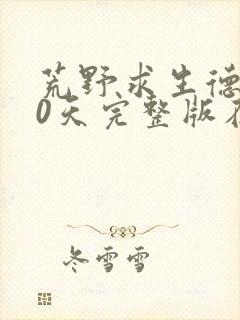 荒野求生德
0天完整版在
冬雪雪